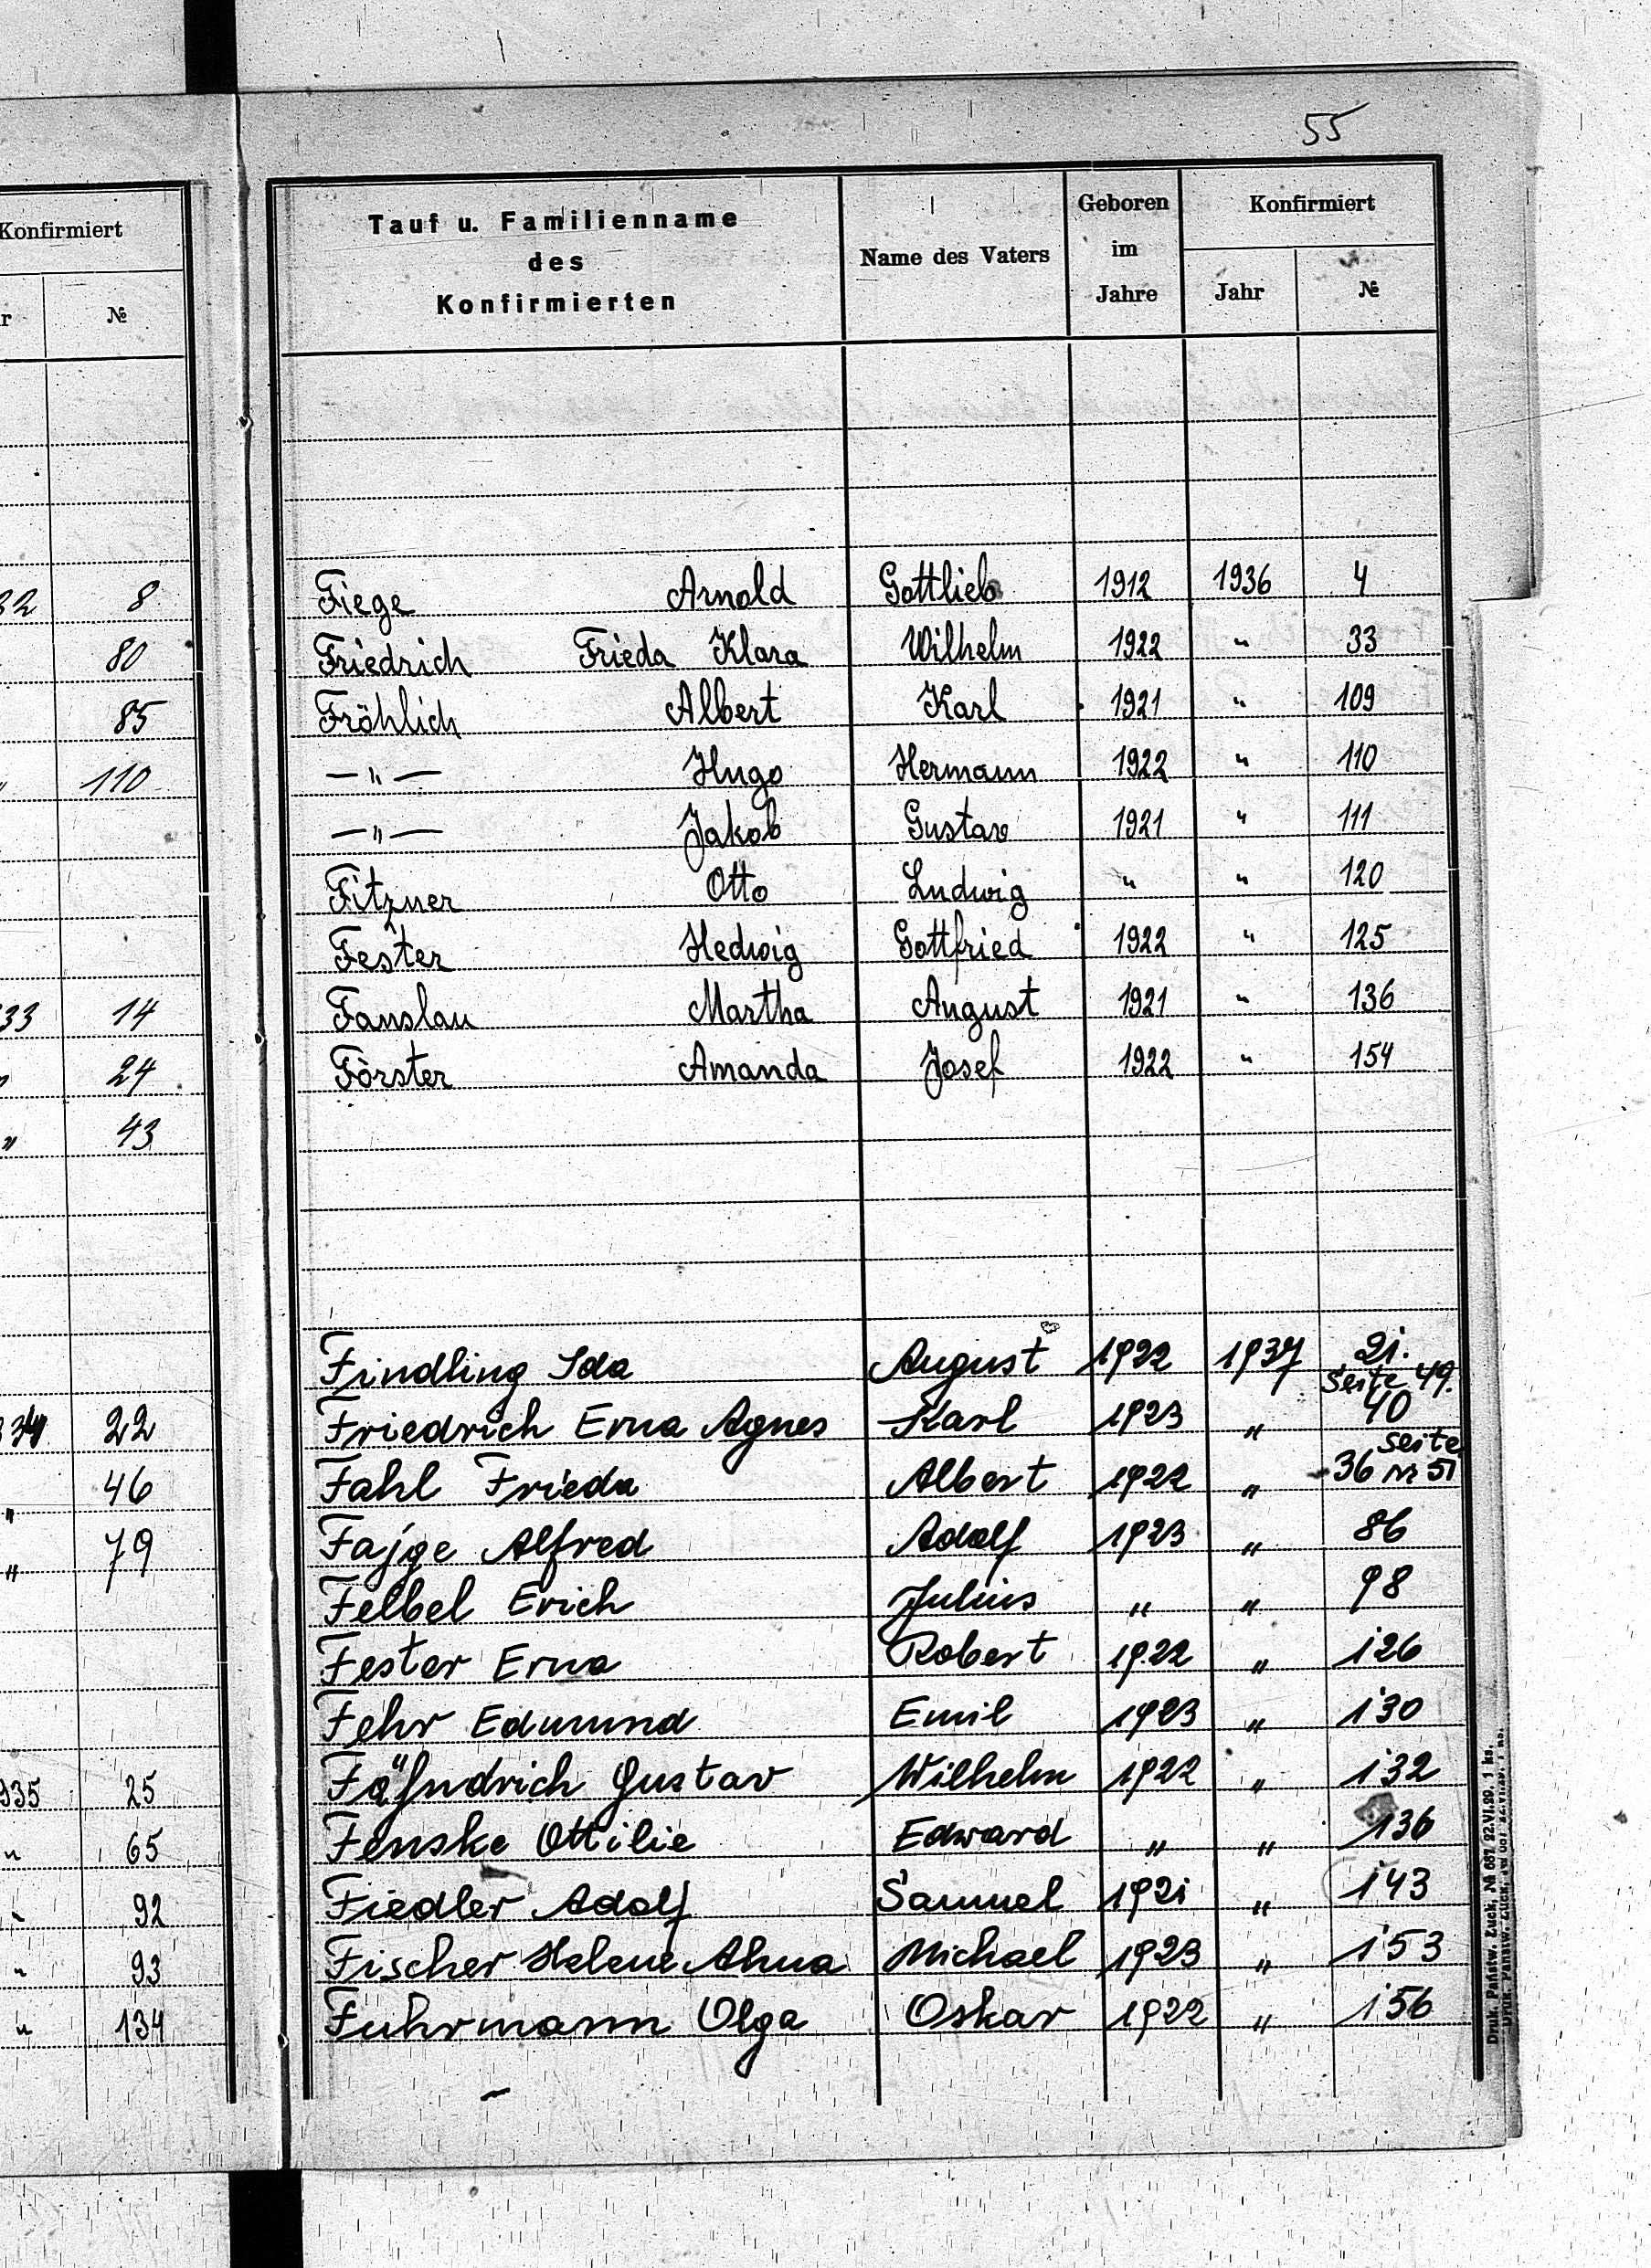 55
Konfirmiert
№
8
80
85
110
14
24
43
22
46
79
935 25
" 65
" 92
" 93
" 134
Tauf u. Familienname des Konfirmierten | Name des Vaters | Geboren im Jahre | Konfirmiert
Jahr | №
Fiege Arnold Gottlieb 1912 1936 4
Friedrich Frieda Klara Wilhelm 1922 " 33
Fröhlich Albert Karl 1921 " 109
—"— Hugo Hermann 1922 " 110
—"— Jakob Gustav 1921 " 111
Fitzner Otto Ludwig " " 120
Fester Hedwig Gottfried 1922 " 125
Fanslau Martha August 1921 " 136
Förster Amanda Josef 1922 " 154
Findling Ida August 1922 1937 21.
Seite 49.
Friedrich Erna Agnes Karl 1923 " 40
Seite
Fahl Frieda Albert 1922 " 36 Nr 51
Fajge Alfred Adolf 1923 " 86
Felbel Erich Julius " " 98
Fester Erna Robert 1922 " 126
Fehr Edmund Emil 1923 " 130
Fähndrich Gustav Wilhelm 1922 " 132
Fenske Ottilie Edward " " 136
Fiedler Adolf Samuel 1921 " 143
Fischer Helene Alma Michael 1923 " 153
Fuhrmann Olga Oskar 1922 " 156
Druk. Państw. Łuck, № 687/22.VI.29. 1 ks.